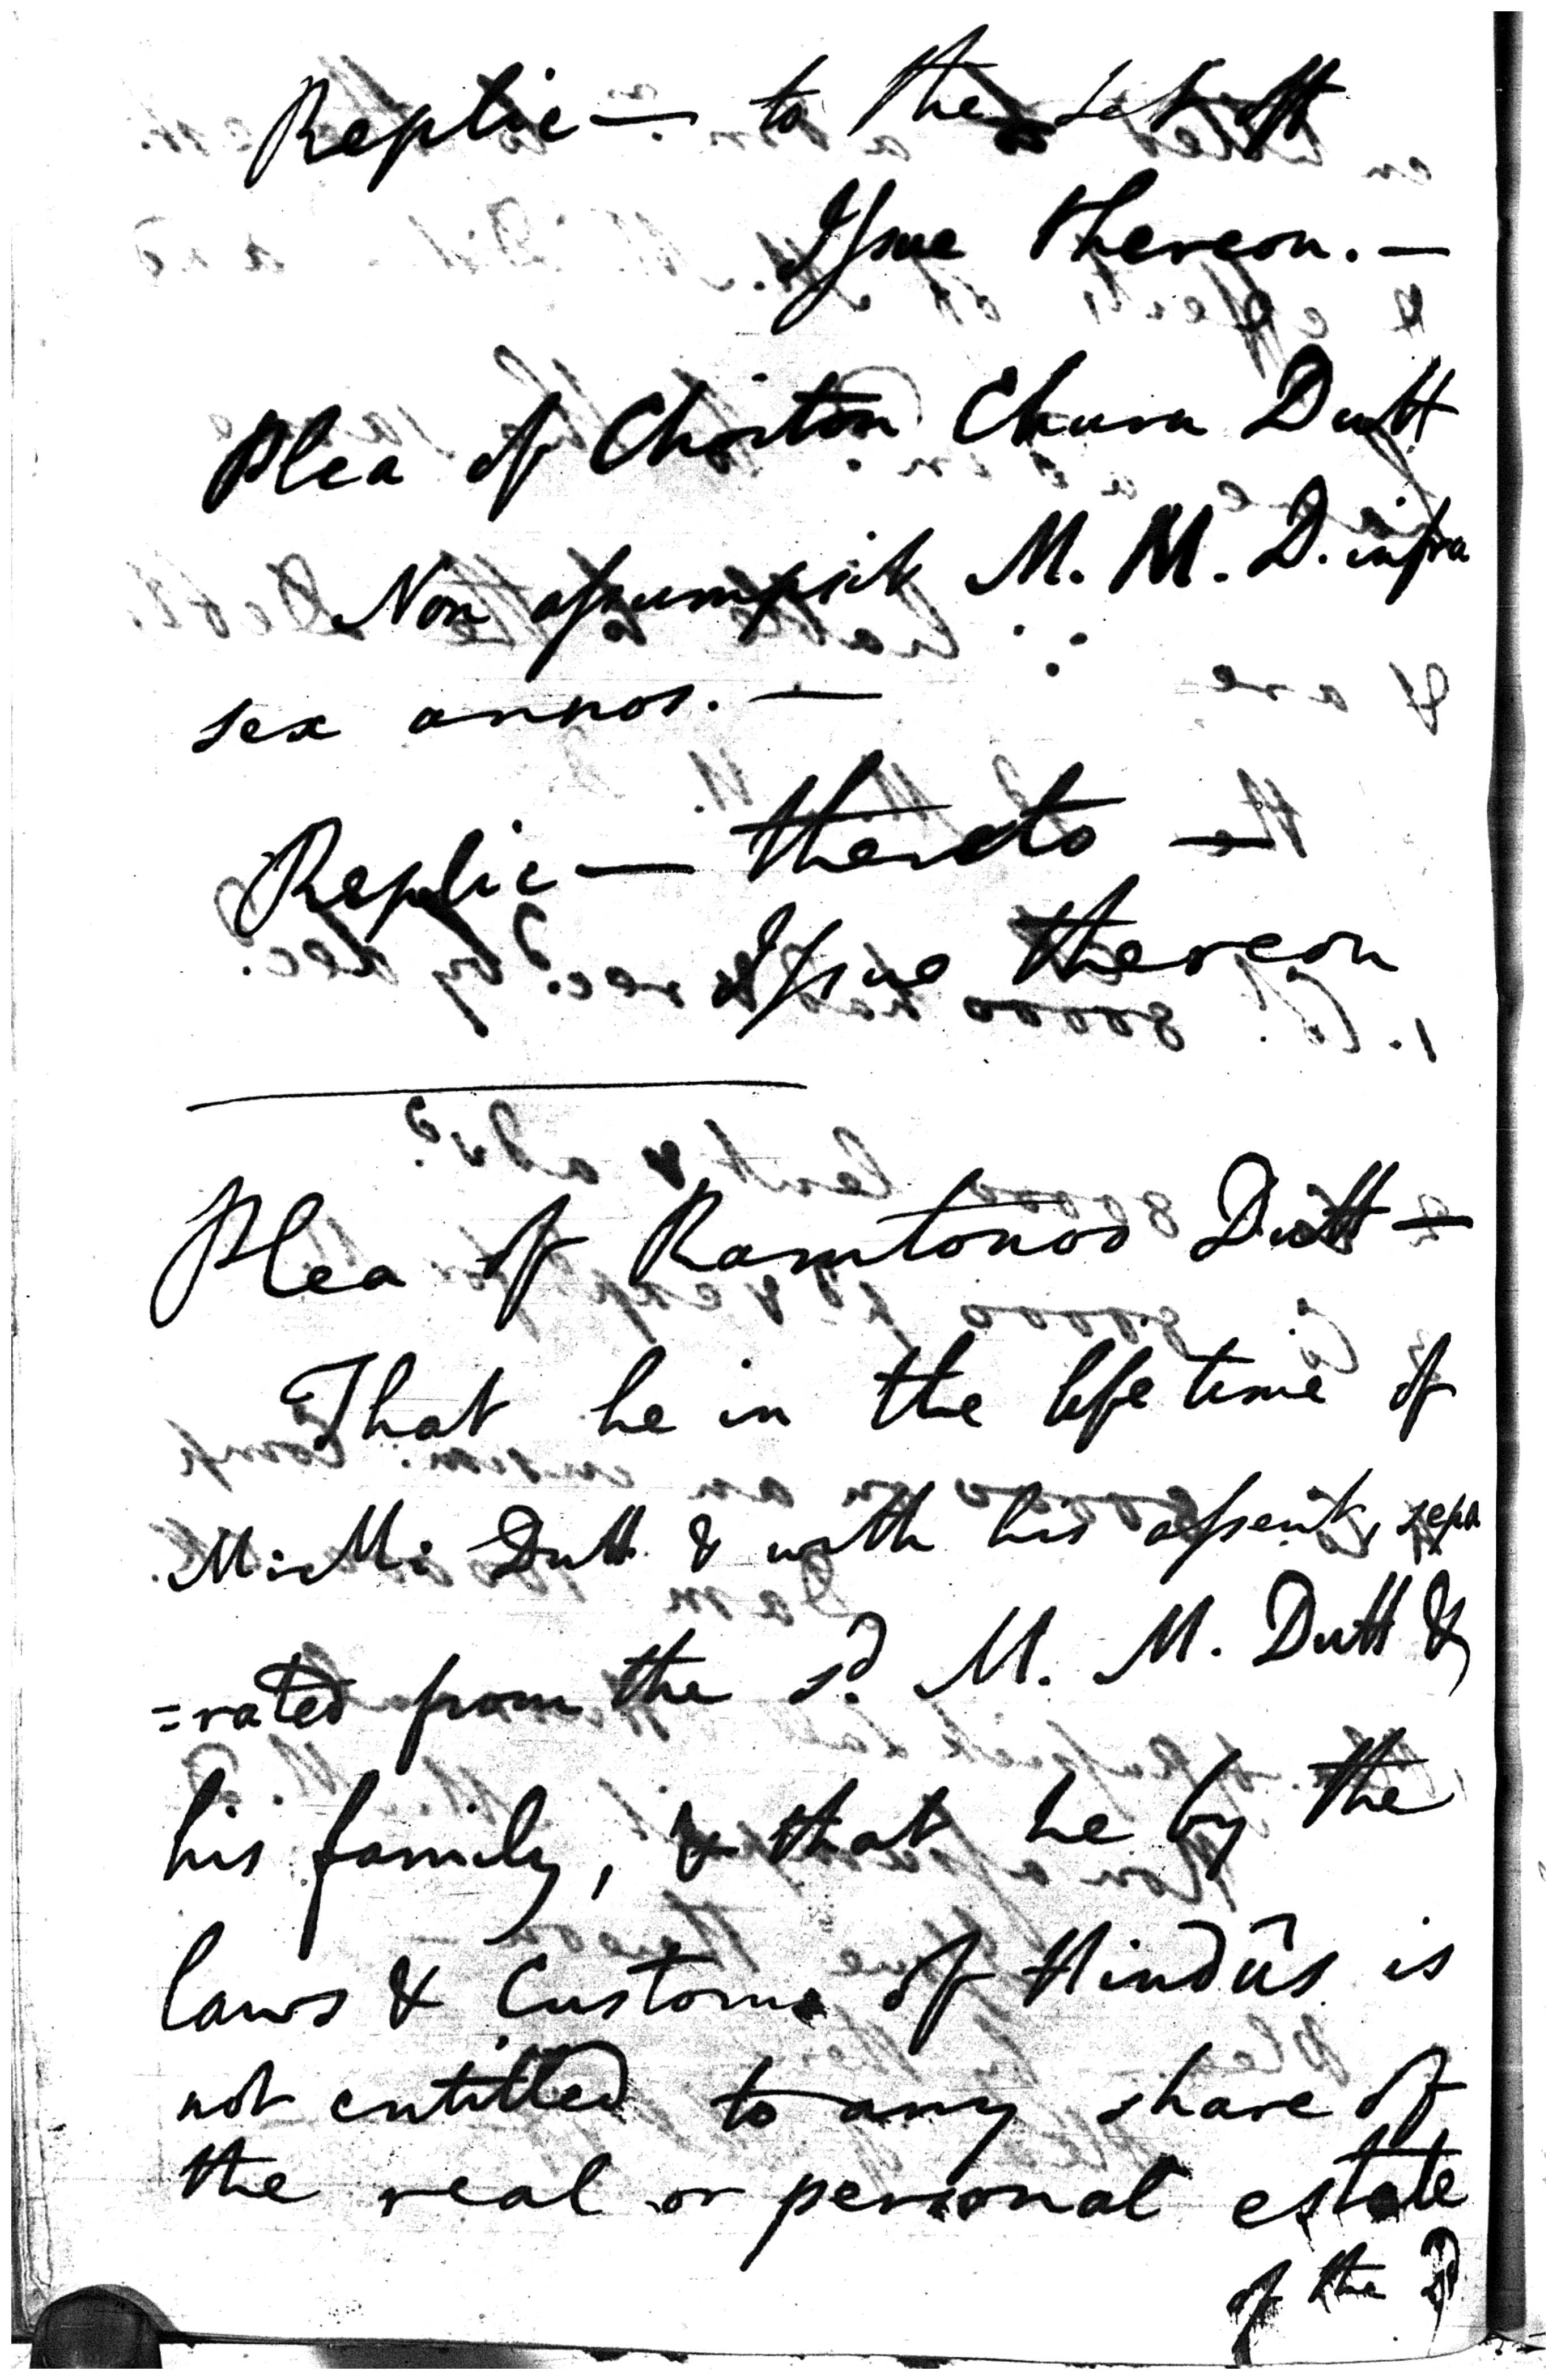 Replic — to the set off
Issue thereon. —
Plea of Choiton Churn Dutt
Non assumpsit M. M. D. infra
sex annos. —
Replic — thereto —
Issue thereon
Plea of Ramtonoo Dutt —
That he in the life time of
M. M. Dutt & with his assent, sepa
=rated from the sd. M. M. Dutt &
his family, & that he by the
laws & Customs of Hindûs is
not entitled to any share of
the real or personal estate
of the sd